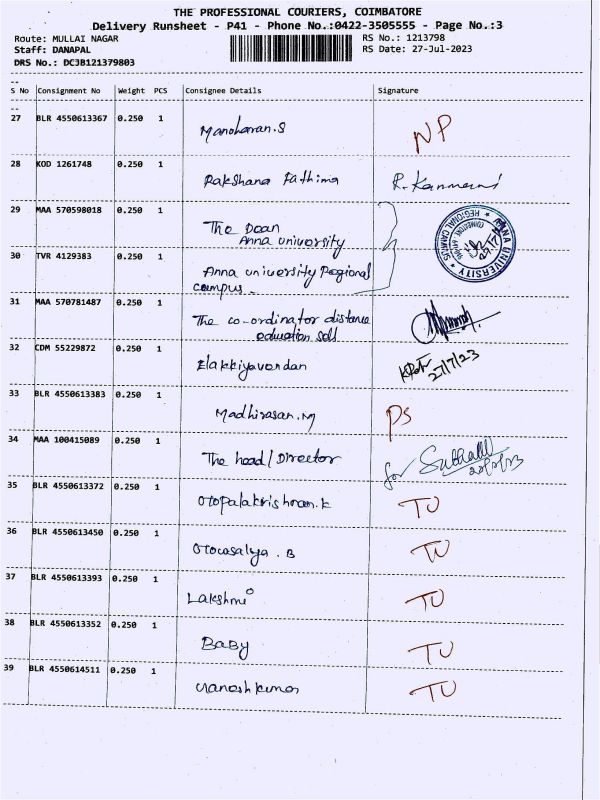 THE PROFESSIONAL COURIERS, COIMBATORE
Delivery Runsheet - P41 - Phone No.:0422-3505555 - Page No.:3
Route: MULLAI NAGAR
RS No.: 1213798
Staff: DANAPAL
RS Date: 27-Jul-2023
DRS No.: DCJB121379803
S No Consignment No Weight PCS Consignee Details Signature
27 BLR 4550613367 0.250 1 Manoharan.S NP
28 KOD 1261748 0.250 1 Rakshana Fathima R. Kanmani
29 MAA 570598018 0.250 1 The Dean
Anna university
30 TVR 4129383 0.250 1 Anna university Regional
campus
ANNA UNIVERSITY REGIONAL CAMPUS
31 MAA 570781487 0.250 1 The co-ordinator distance
education
32 CDM 55229872 0.250 1 Elakkiyavendan 27/7/23
33 BLR 4550613383 0.250 1 Madhirasan.M PS
34 MAA 100415089 0.250 1 The head/Director for
35 BLR 4550613372 0.250 1 TU
36 BLR 4550613450 0.250 1 TU
37 BLR 4550613393 0.250 1 Lakshmi TU
38 BLR 4550613352 0.250 1 Baby TU
39 BLR 4550614511 0.250 1 TU